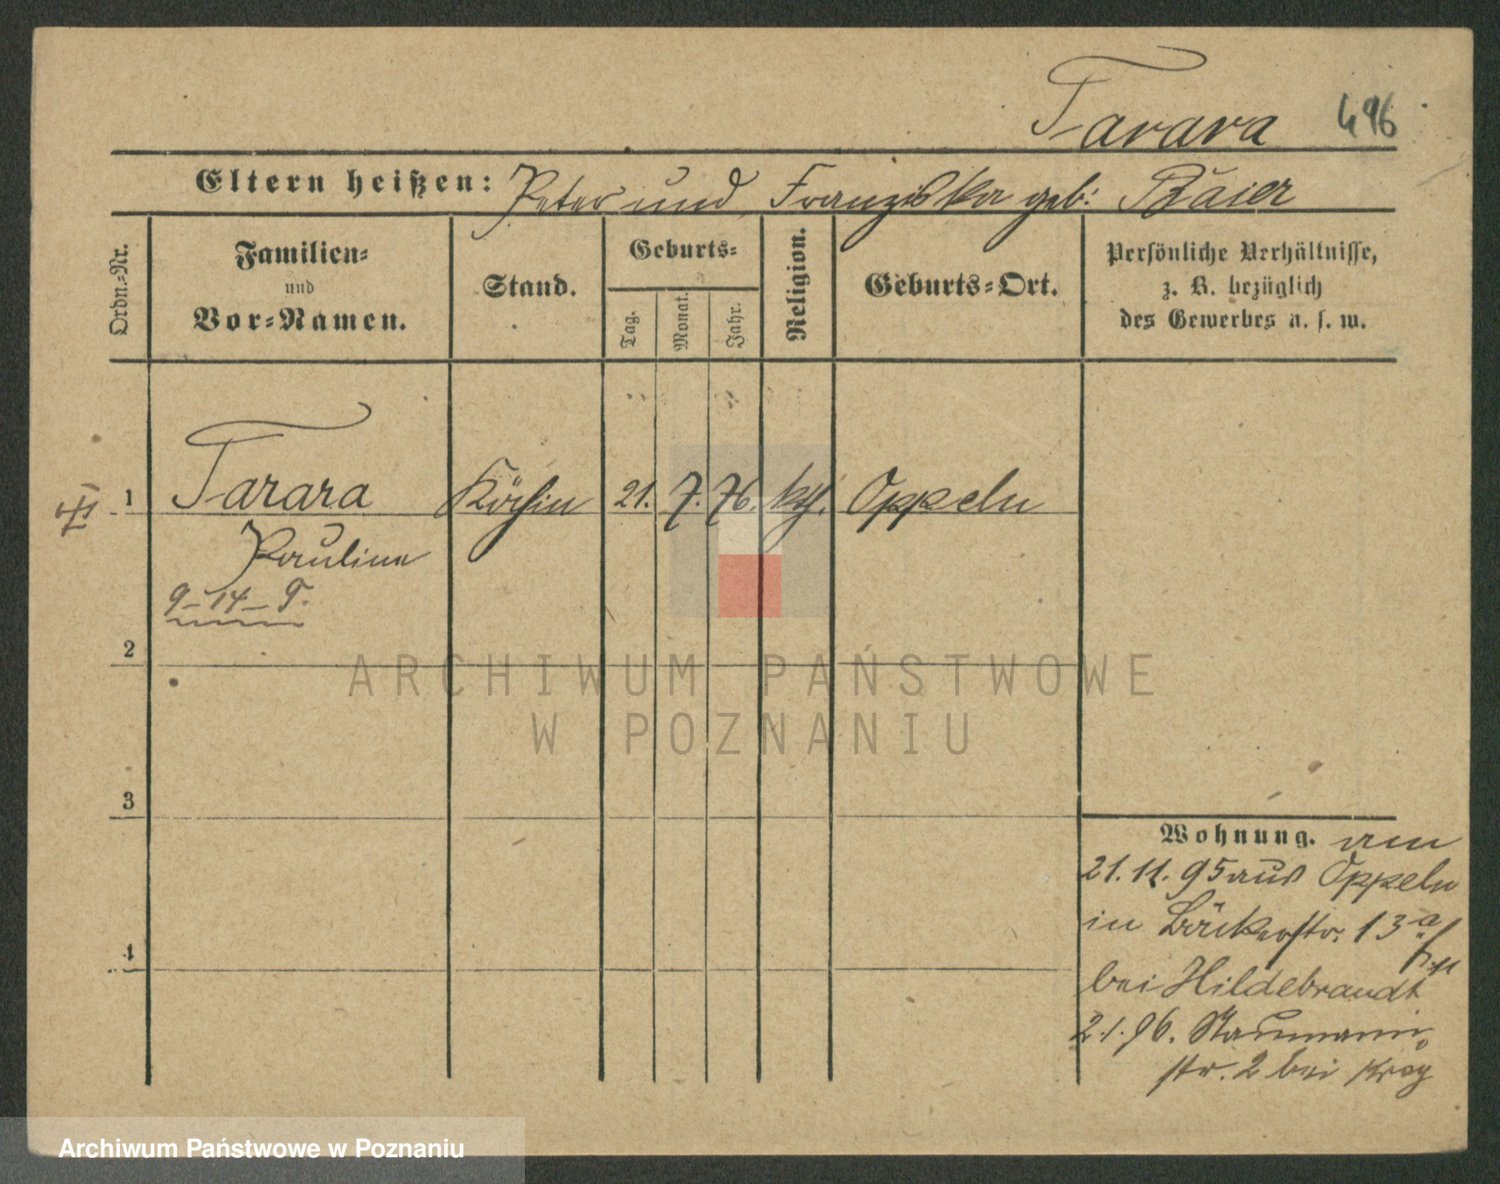 Tarara 496
Eltern heißen: Peter und Franziska geb: Baier
Ordn.-Nr.
Familien-
und
Vor-Namen.
Stand.
Geburts-
Tag.
Monat.
Jahr.
Religion.
Geburts-Ort.
Persönliche Verhältnisse,
z. B. bezüglich
des Gewerbes u. s. w.
1 Tarara Köchin 21. 7. 76. kth. Oppeln
Pauline
9-14-
2
3
4
Wohnung. am
21. 11. 95 aus Oppeln
in Bäckerstr. 13a
bei Hildebrandt
2.1.96. Naumann
str. 2 bei
ARCHIWUM PAŃSTWOWE
W POZNANIU
Archiwum Państwowe w Poznaniu